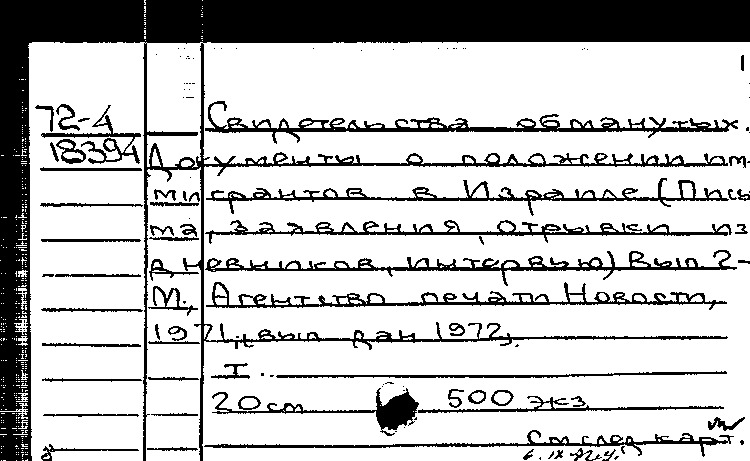 1
72-4 Свидетельства обманутых.
18394 Документы о положении им-
мигрантов в Израиле (Пись
ма, заявления, отрывки из
дневников, интервью) Вып 2-
М., Агентство печати Новости,
1971, вып дан 1972,.
I..
20 см 500 экз
См след карт.